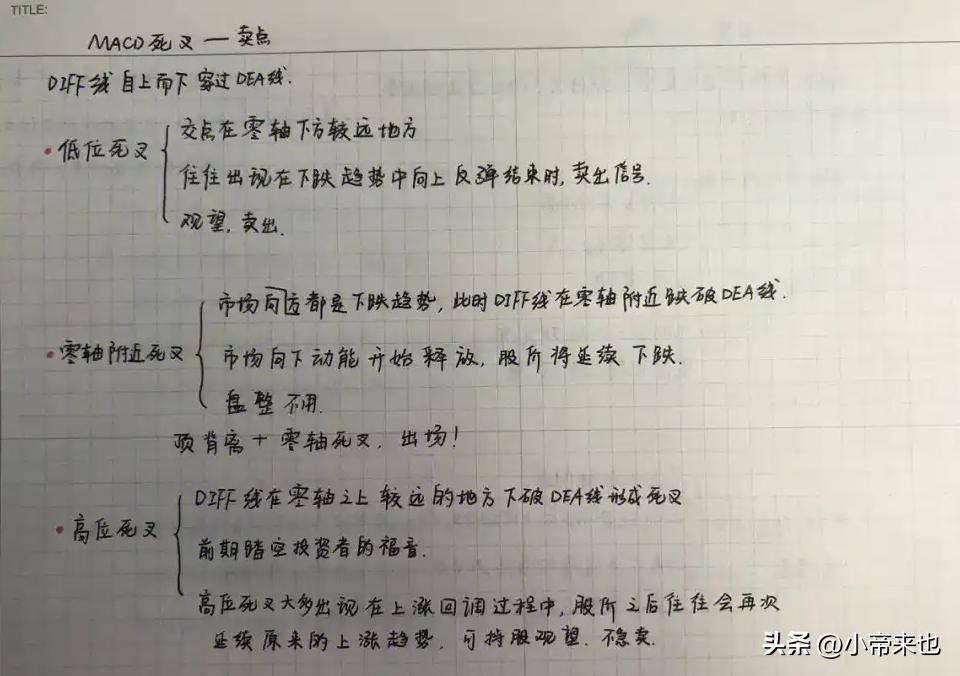 TITLE:
MACD死叉—卖点
DIFF线自上而下穿过DEA线.
• 低位死叉
交点在零轴下方较远地方
往往出现在下跌趋势中向上反弹结束时,卖出信号.
观望,卖出.
• 零轴附近死叉
市场向运都是下跌趋势,此时DIFF线在零轴附近跌破DEA线.
市场向下动能开始释放,股价将延续下跌.
盘整不用.
顶背离+零轴死叉,出场!
• 高位死叉
DIFF线在零轴之上较远的地方下破DEA线形成死叉
前期踏空投资者的福音.
高位死叉大多出现在上涨回调过程中,股价之后往往会再次
延续原来的上涨趋势,可持股观望.不急卖.
头条 @小帝来也